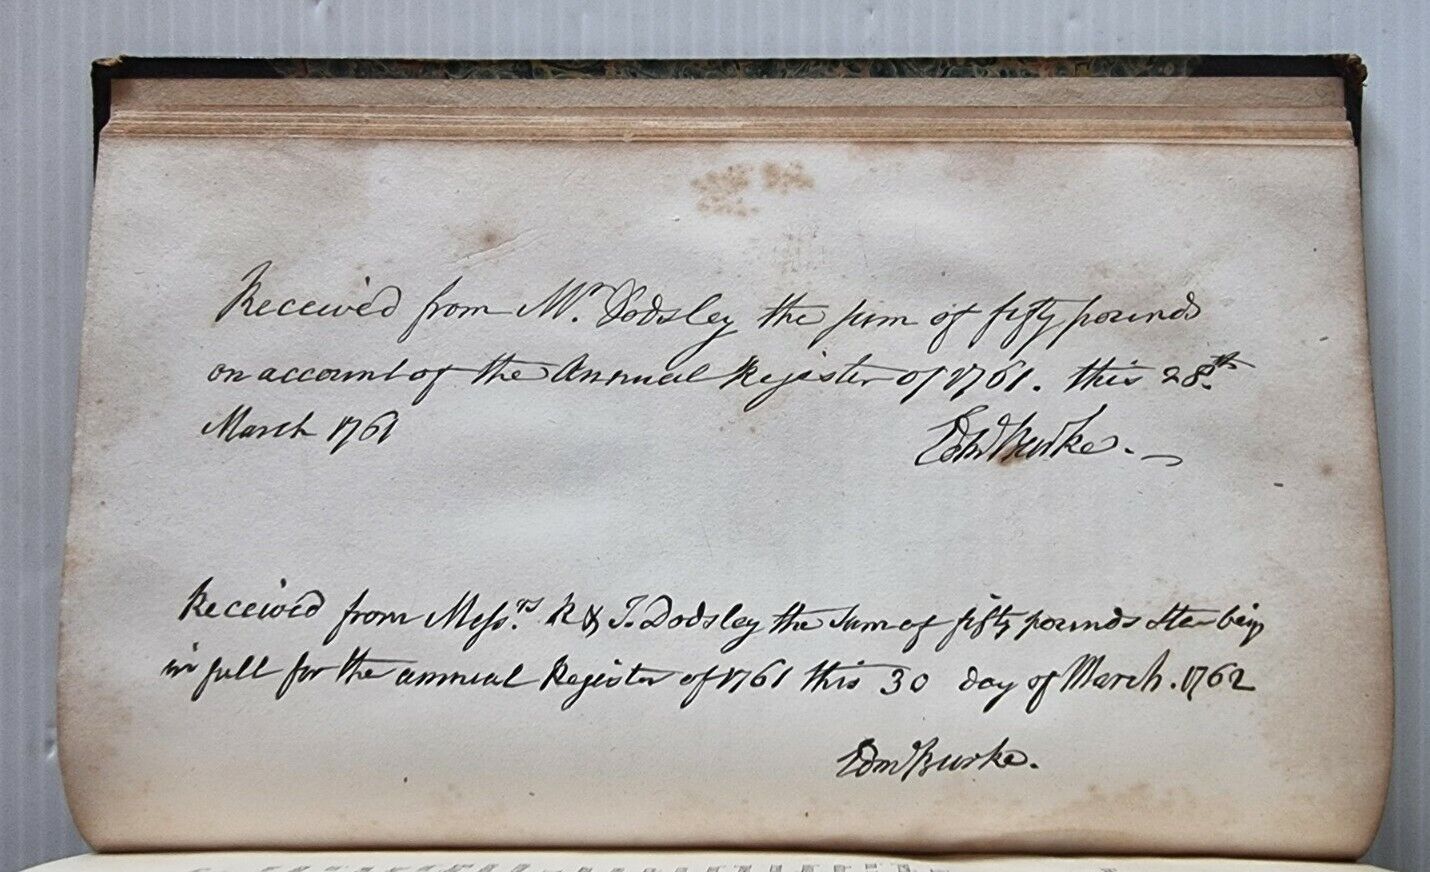 Received from Mr. Dodsley the sum of fifty pounds
on account of the Annual Register of 1761. this 28th.
March 1761
Edm Burke. —
Received from Messrs. R & J. Dodsley the sum of fifty pounds being
in full for the annual Register of 1761 this 30 day of March. 1762
Edm Burke.